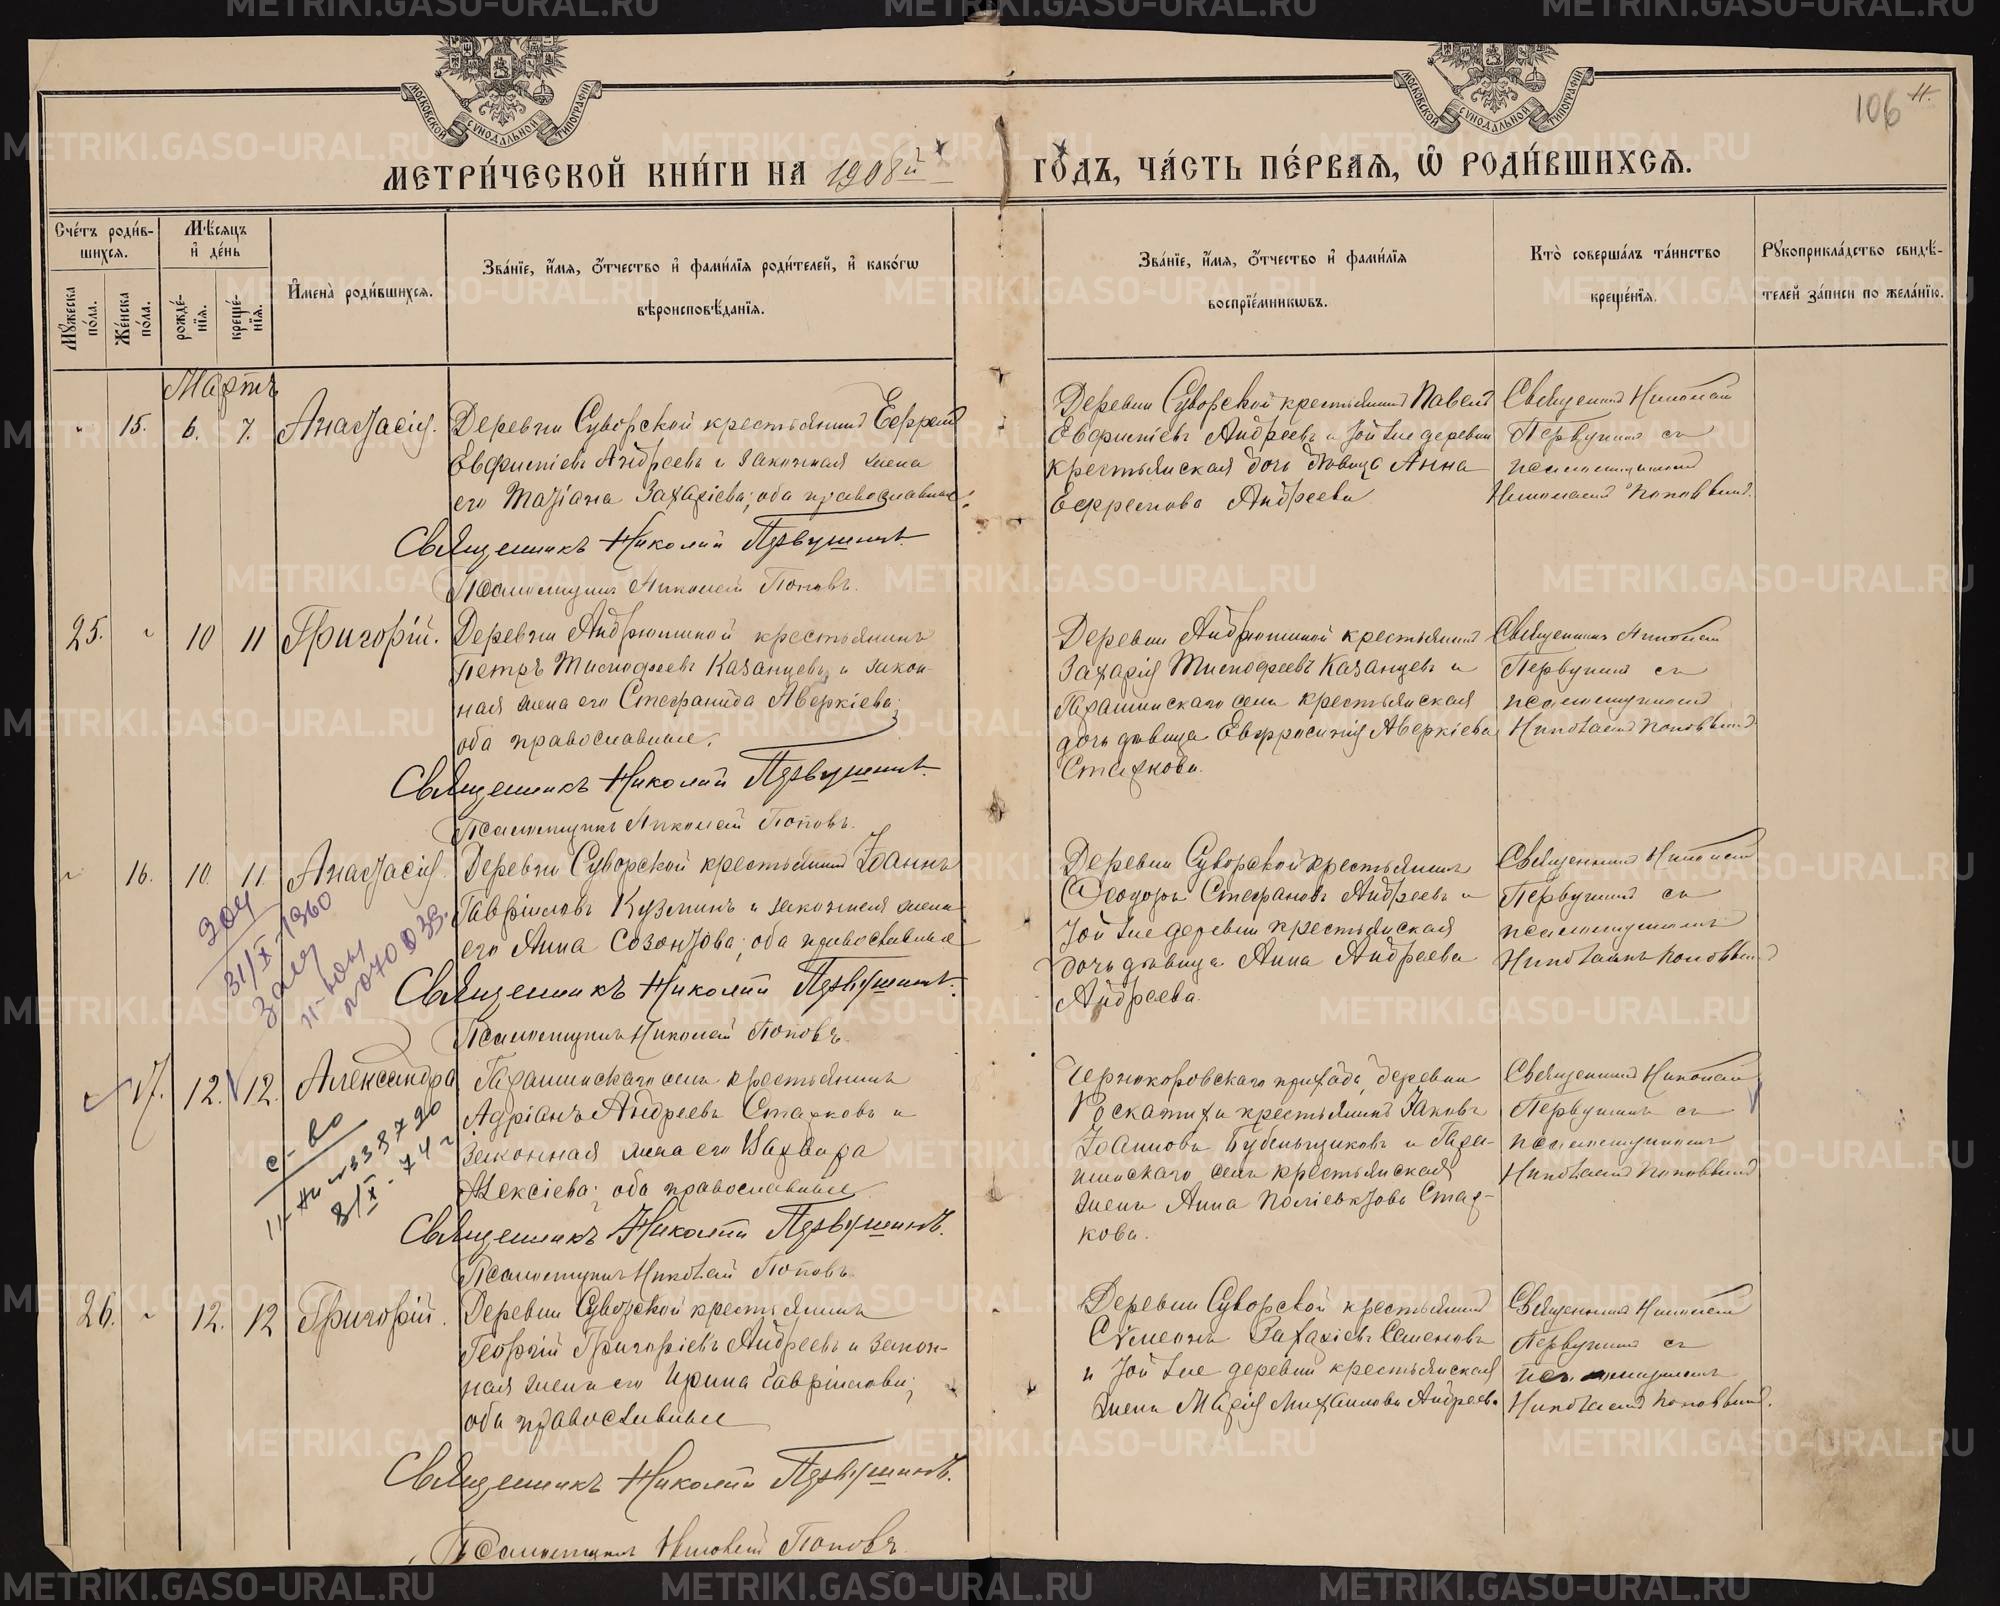 МОСКОВСКОЙ СѴНОДАЛЬНОЙ ТИПОГРАФІИ
МОСКОВСКОЙ СѴНОДАЛЬНОЙ ТИПОГРАФІИ
106
МЕТРИ́ЧЕСКОЙ КНИ́ГИ НА 1908й ГО́ДЪ, ЧА́СТЬ ПЕ́РВАѦ, Ѡ РОДИ́ВШИХСѦ.
Сче́тъ роди́в-
шихсѧ.
Мꙋ́жеска по́ла.
Же́нска по́ла.
Мѣ́сѧцъ
и҆ де́нь
рожде́-
нїѧ.
креще́-
нїѧ.
И҆мена̀ роди́вшихсѧ.
Зва́нїе, и҆́мѧ, ѻ҆́тчество и҆ фами́лїѧ роди́телей, и҆ како́гѡ
вѣроисповѣ́данїѧ.
Зва́нїе, и҆́мѧ, ѻ҆́тчество и҆ фами́лїѧ
воспрїе́мникѡвъ.
Кто̀ соверша́лъ та́инство
креще́нїѧ.
Рꙋкоприкла́дство свидѣ́-
телей за́писи по жела́нїю.
Мартъ
15. 6. 7. Анастасія.
Деревни Суворской крестьянинъ Ефремъ
Евфиміевъ Андреевъ и законная жена
его Татіана Захаріева; оба православные.
Священникъ Николай Первушинъ.
Псаломщикъ Николай Поповъ.
Деревни Суворской крестьянинъ Павелъ
Евфиміевъ Андреевъ и той же деревни
крестьянская дочь дѣвица Анна
Ефремова Андреева
Священникъ Николай
Первушинъ съ
псаломщикомъ
Николаемъ Поповымъ.
25. 10 11 Григорій.
Деревни Андрюшиной крестьянинъ
Петръ Тимофеевъ Казанцевъ и закон-
ная жена его Стефанида Аверкіева;
оба православные.
Священникъ Николай Первушинъ.
Псаломщикъ Николай Поповъ.
Деревни Андрюшиной крестьянинъ
Захарія Тимофеевъ Казанцевъ и
Гарашкинскаго села крестьянская
дочь дѣвица Евфросинія Аверкіева
Старкова.
Священникъ Николай
Первушинъ съ
псаломщикомъ
Николаемъ Поповымъ
16. 10. 11. Анастасія.
Деревни Суворской крестьянинъ Іоаннъ
Гавріиловъ Кузминъ и законная жена
его Анна Созонтова; оба православные
Священникъ Николай Первушинъ.
Псаломщикъ Николай Поповъ.
31/X-1960
Деревни Суворской крестьянинъ
Ѳеодоръ Стефановъ Андреевъ и
той же деревни крестьянская
дочь дѣвица Анна Андреева
Андреева.
Священникъ Николай
Первушинъ съ
псаломщикомъ
Николаемъ Поповымъ
17. 12. 12. Александра
Гарашкинскаго села крестьянинъ
Адріанъ Андреевъ Старковъ и
законная жена его Варвара
Алексіева; оба православные
Священникъ Николай Первушинъ.
Псаломщикъ Николай Поповъ.
8/X-74 г
Чернокоровскаго прихода, деревни
Роскатихи крестьянинъ Іаковъ
Іоанновъ Бубенщиковъ и Гара-
шкинскаго села крестьянская
жена Анна Поліевктова Стар-
кова.
Священникъ Николай
Первушинъ съ
псаломщикомъ
Николаемъ Поповымъ
26. 12. 12 Григорій.
Деревни Суворской крестьянинъ
Георгій Григоріевъ Андреевъ и закон-
ная жена его Ирина Гавріилова;
оба православные
Священникъ Николай Первушинъ.
Псаломщикъ Николай Поповъ
Деревни Суворской крестьянинъ
Сѵмеонъ Захаріевъ Семеновъ
и той же деревни крестьянская
жена Марія Михаилова Андреева
Священникъ Николай
Первушинъ съ
псаломщикомъ
Николаемъ Поповымъ.
METRIKI.GASO-URAL.RU